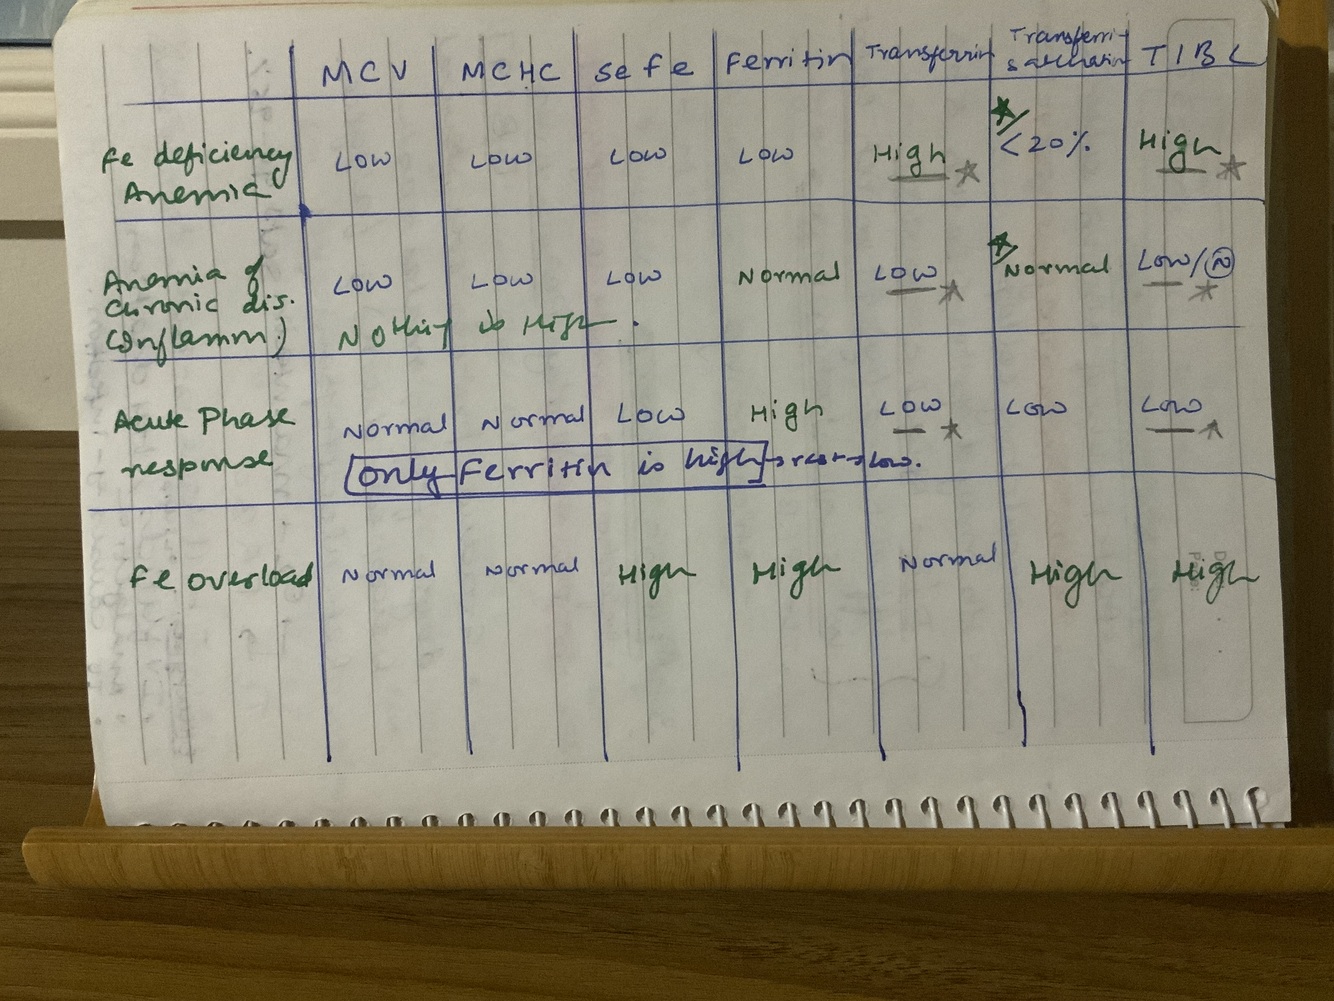 MCV MCHC Se fe Ferritin Transferrin Transferri- saturation TIBC
Fe deficiency Anemia Low Low Low Low High <20% High
Anemia of chronic dis. (Inflamm.) Low Low Low Normal Low Normal Low/N
Nothing is High.
Acute Phase response Normal Normal Low High Low Low Low
only Ferritin is high → rest → low.
Fe overload Normal Normal High High Normal High High